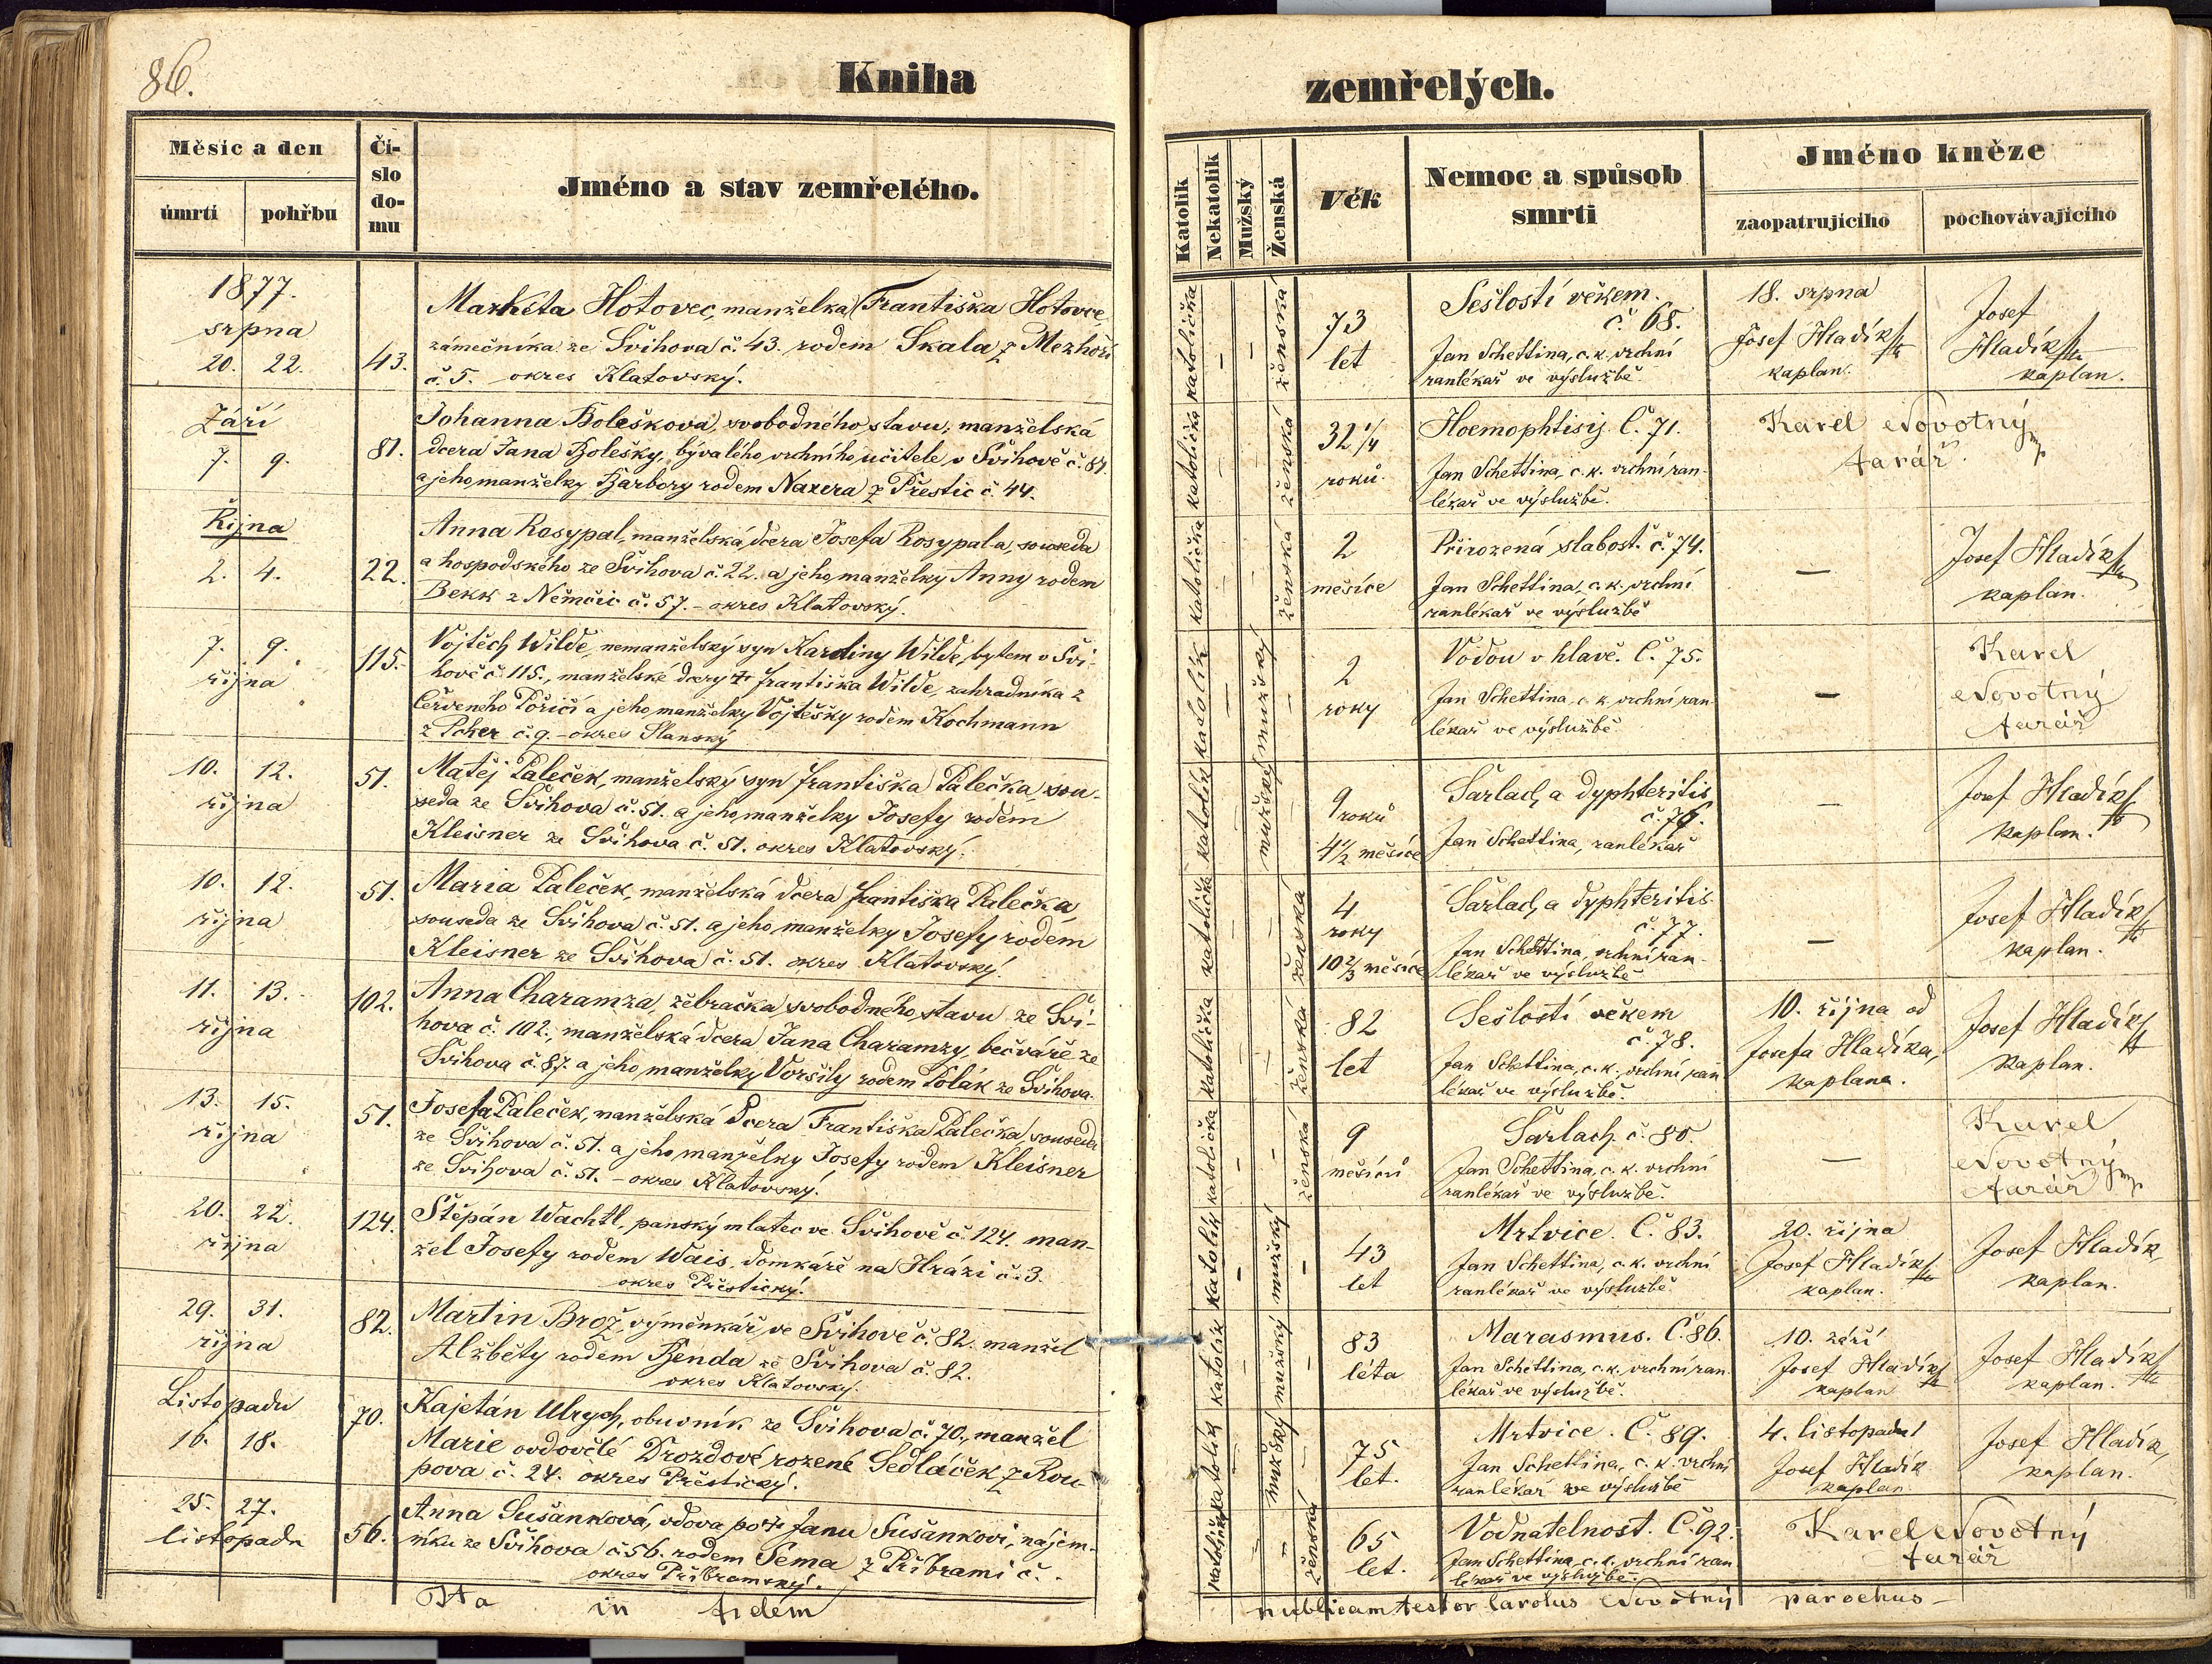 86.
Kniha zemřelých.
Měsíc a den
úmrtí
pohřbu
Čí-
slo
do-
mu
Jméno a stav zemřelého.
Katolík
Nekatolík
Mužský
Ženská
Věk
Nemoc a spůsob
smrti
Jméno kněze
zaopatrujícího
pochovávajícího
1877.
srpna
20. 22.
43.
Markéta Hotovec, manželka Františka Hotovce,
zámečníka ze Švihova č. 43. rodem Skala z Mezhoří
č. 5. okres Klatovský.
katolička
–
–
ženská
73
let
Sešlostí věkem.
č. 68.
Jan Schettina, c. k. vrchní
ranlékař ve výslužbě.
18. srpna
Josef Hladík
kaplan.
Josef
Hladík
kaplan.
Září
7. 9.
81.
Johanna Bolešková, svobodného stavu, manželská
dcera Jana Bolešky, bývalého vrchního učitele v Švihově č. 81.
a jeho manželky Barbory rodem Naxera z Přestic č. 44.
katolička
–
–
ženská
32 1/4
roků
Hoemophtisij. Č. 71.
Jan Schettina, c. k. vrchní ran-
lékař ve výslužbě.
Karel Novotný mp
farář.
Října
2. 4.
22.
Anna Rosypal, manželská dcera Josefa Rosypala, souseda
a hospodského ze Švihova č. 22. a jeho manželky Anny rodem
Bekk z Němčic č. 57. – okres Klatovský.
katolička
–
–
ženská
2
měsíce
Přirozená slabost. č. 74.
Jan Schettina, c. k. vrchní
ranlékař ve výslužbě
–
Josef Hladík
kaplan.
7. 9.
října
115.
Vojtěch Wilde, nemanželský syn Karoliny Wilde, bytem v Švi-
hově č. 115., manželské dcery Františka Wilde, zahradníka z
Červeného Poříčí a jeho manželky Vojtěšky rodem Kochmann
z Pcher č. 9. – okres Slanský
katolík
–
mužský
–
2
roky
Vodou v hlavě. Č. 75.
Jan Schettina, c. k. vrchní ran
lékař ve výslužbě
–
Karel
Novotný
farář
10. 12.
října
51.
Matěj Paleček, manželský syn Františka Palečka, sou-
seda ze Švihova č. 51. a jeho manželky Josefy rodem
Kleisner ze Švihova č. 51. okres Klatovský.
katolík
–
mužský
–
9 roků
4 1/2 měsíce
Šarlach a dyphteritis
č. 76.
Jan Schettina, ranlékař
–
Josef Hladík
kaplan.
10. 12.
října
51.
Maria Paleček, manželská dcera Františka Palečka,
souseda ze Švihova č. 51. a jeho manželky Josefy rodem
Kleisner ze Švihova č. 51. okres Klatovský.
katolička
–
–
ženská
4
roky
10 2/3 měsíce
Šarlach a dyphteritis
č. 77.
Jan Schettina, vrchní ran-
lékař ve výslužbě
–
Josef Hladík
kaplan.
11. 13.
října
102.
Anna Charamza, žebračka, svobodného stavu ze Švi-
hova č. 102., manželská dcera Jana Charamzy, bečváře ze
Švihova č. 87. a jeho manželky Voršily rodem Polák ze Švihova.
katolička
–
–
ženská
82
let
Sešlostí věkem
č. 78.
Jan Schettina, c. k. vrchní ran
lékař ve výslužbě.
10. října od
Josefa Hladíka,
kaplana.
Josef Hladík
kaplan.
13. 15.
října
51.
Josefa Paleček, manželská dcera Františka Palečka, souseda
ze Švihova č. 51. a jeho manželky Josefy rodem Kleisner
ze Švihova č. 51. – okres Klatovský.
katolička
–
–
ženská
9
měsíců
Šarlach č. 80.
Jan Schettina, c. k. vrchní
ranlékař ve výslužbě.
–
Karel
Novotný mp
farář
20. 22.
října
124.
Štěpán Wachtl, panský mlatec ve Švihově č. 124. man-
žel Josefy rodem Wais, domkáře na Hrázi č. 3.
okres Přestický.
katolík
–
mužský
–
43
let
Mrtvice. Č. 83.
Jan Schettina, c. k. vrchní
ranlékař ve výslužbě
20. října
Josef Hladík
kaplan.
Josef Hladík,
kaplan.
29. 31.
října
82.
Martin Brož, výměnkář ve Švihově č. 82. manžel
Alžběty rodem Benda ze Švihova č. 82.
okres Klatovský.
katolík
–
mužský
–
83
léta
Marasmus. Č 86.
Jan Schettina, c. k. vrchní ran
lékař ve výslužbě.
10. září
Josef Hladík
kaplan
Josef Hladík
kaplan.
Listopadu
16. 18.
70.
Kajetán Ulrych, obuvník ze Švihova č. 70., manžel
Marie ovdovělé Drozdové rozené Sedláček z Rou-
pova č. 24. okres Přestický.
katolík
–
mužský
75
let.
Mrtvice. Č. 89.
Jan Schettina, c. k. vrchní
ranlékař ve výslužbě
4. listopadu
Josef Hladík
kaplan
Josef Hladík,
kaplan.
25. 27.
listopadu
56.
Anna Sušanková, vdova po Janu Sušankovi, nájem-
níku ze Švihova č. 56. rodem Sema z Příbrami č.
okres Příbramský.
katolička
–
–
ženská
65
let.
Vodnatelnost. Č. 92.
Jan Schettina, c. k. vrchní ran
lékař ve výslužbě.
Karel Novotný
farář
Ita in fidem publicam testor Carolus Novotný parochus –